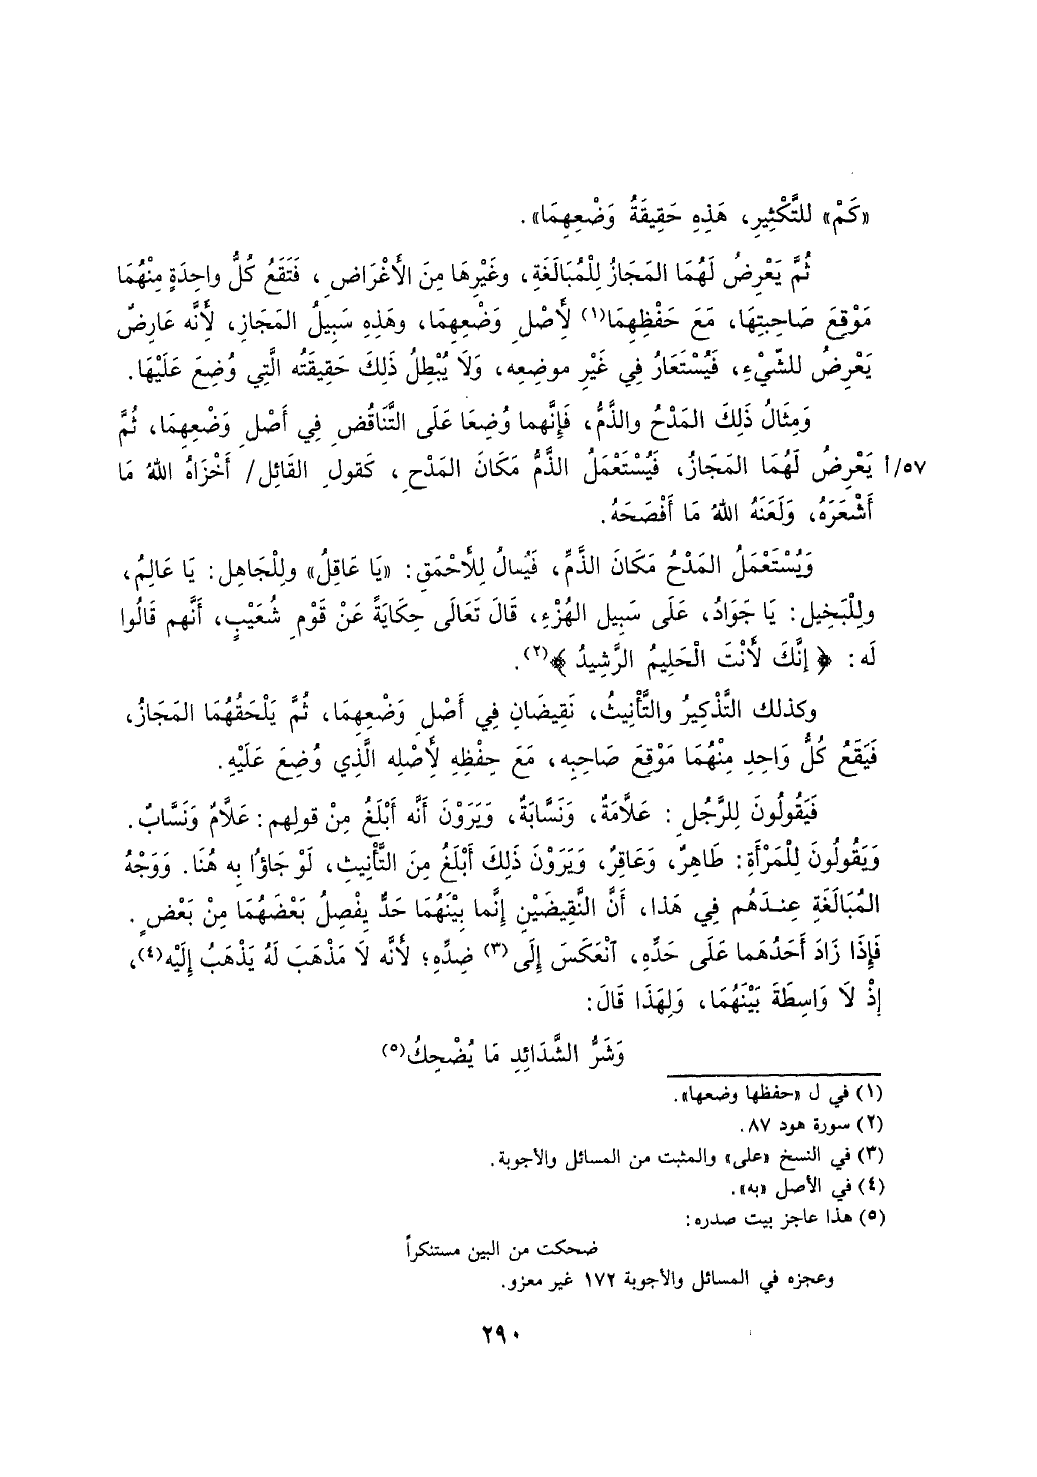 «كَمْ» للتَّكْثِيرِ، هَذِهِ حَقِيقَةُ وَضْعِهِمَا».
ثُمَّ يَعْرِضُ لَهُمَا المَجَازُ لِلْمُبَالَغَةِ، وغَيْرِهَا مِنَ الأَغْرَاضِ، فَتَقَعُ كُلُّ واحِدَةٍ مِنْهُمَا
مَوْقِعَ صَاحِبتِهَا، مَعَ حَفْظِهِمَا(١) لأَِصْلِ وَضْعِهِمَا، وهَذِهِ سَبِيلُ المَجَازِ، لأَِنَّه عَارِضٌ
يَعْرِضُ للشَّيْءِ، فَيُسْتَعَارُ فِي غَيْرِ موضِعِه، وَلَا يُبْطِلُ ذَلِكَ حَقِيقَتُه الَّتِي وُضِعَ عَلَيْهَا.
وَمِثَالُ ذَلِكَ المَدْحُ والذَّمُّ، فَإِنَّهما وُضِعَا عَلَى التَّنَاقُضِ فِي أَصْلِ وَضْعِهِمَا، ثُمَّ
٥٧/أ يَعْرِضُ لَهُمَا المَجَازُ، فَيُسْتَعْمَلُ الذَّمُّ مَكَانَ المَدْحِ، كَقولِ القَائِلِ/ أَخْزَاهُ اللهُ مَا
أَشْعَرَهُ، وَلَعَنَهُ اللهُ مَا أَفْصَحَهُ.
وَيُسْتَعْمَلُ المَدْحُ مَكَانَ الذَّمِّ، فَيُقالُ لِلأَحْمَقِ: «يَا عَاقِلُ» ولِلْجَاهِلِ: يَا عَالِمُ،
ولِلْبَخِيلِ: يَا جَوَادُ، عَلَى سَبِيلِ الهُزْءِ، قَالَ تَعَالَى حِكَايَةً عَنْ قَوْمِ شُعَيْبٍ، أَنَّهم قَالُوا
لَه: ﴿ إنَّكَ لأَنْتَ الْحَلِيمُ الرَّشِيدُ ﴾(٢).
وكذلك التَّذْكِيرُ والتَّأْنِيثُ، نَقِيضَانِ فِي أَصْلِ وَضْعِهِمَا، ثُمَّ يَلْحَقُهُمَا المَجَازُ،
فَيَقَعُ كُلُّ وَاحِدٍ مِنْهُمَا مَوْقِعَ صَاحِبِه، مَعَ حِفْظِهِ لأَِصْلِه الَّذِي وُضِعَ عَلَيْهِ.
فَيَقُولُونَ لِلرَّجُلِ: عَلَّامَةٌ، وَنَسَّابَةٌ، وَيَرَوْنَ أَنَّه أَبْلَغُ مِنْ قولِهم: عَلَّامٌ وَنَسَّابٌ.
وَيَقُولُونَ لِلْمَرْأَةِ: طَاهِرٌ، وَعَاقِرٌ، وَيَرَوْنَ ذَلِكَ أَبْلَغُ مِنَ التَّأْنِيثِ، لَوْ جَاؤُا بِه هُنَا. وَوَجْهُ
المُبَالَغَةِ عِنـدَهُم فِي هَذَا، أَنَّ النَّقِيضَيْنِ إِنَّما بِيْنَهُمَا حَدٌّ يفْصِلُ بَعْضَهُمَا مِنْ بَعْضٍ.
فَإِذَا زَادَ أَحَدُهما عَلَى حَدِّهِ، انْعَكَسَ إِلَى(٣) ضِدِّهِ؛ لأَنَّه لَا مَذْهَبَ لَهُ يَذْهَبُ إِلَيْه(٤)،
إِذْ لَا وَاسِطَةَ بَيْنَهُمَا، وَلِهَذَا قَالَ:
وَشَرُّ الشَّدَائِدِ مَا يُضْحِكُ(٥)
(١) في ل «حفظها وضعها».
(٢) سورة هود ٨٧.
(٣) في النسخ «على» والمثبت من المسائل والأجوبة.
(٤) في الأصل «به».
(٥) هذا عاجز بيت صدره:
ضحكت من البين مستنكراً
وعجزه في المسائل والأجوبة ١٧٢ غير معزو.
٢٩٠